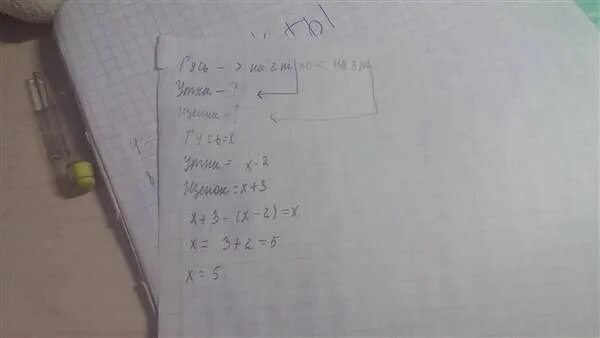 Гусь - > на 2 т, но < на 3 т
Утка - ?
Щенка - ?
Гусь=x
Утка = x-2
Щенок = x+3
x+3-(x-2)=x
x= 3+2=5
x=5.